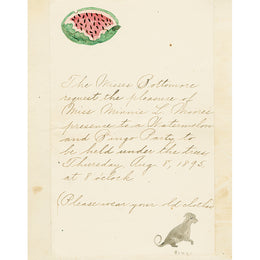 The Misses Bottimore
request the pleasure of
Miss Minnie L. Moores
presence to a Watermelon
and Bingo Party to
be held under the trees
Thursday Aug 8, 1895
at 8 o'clock
(Please wear your old clothes